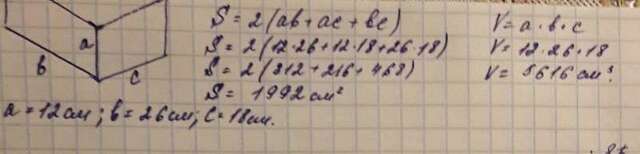 a
b
c
S = 2(ab+ac+bc)
S = 2(12·26+12·18+26·18)
S = 2(312+216+468)
S = 1992 см²
V = a·b·c
V = 12·26·18
V = 5616 см³.
a = 12 см; b = 26 см; c = 18 см.